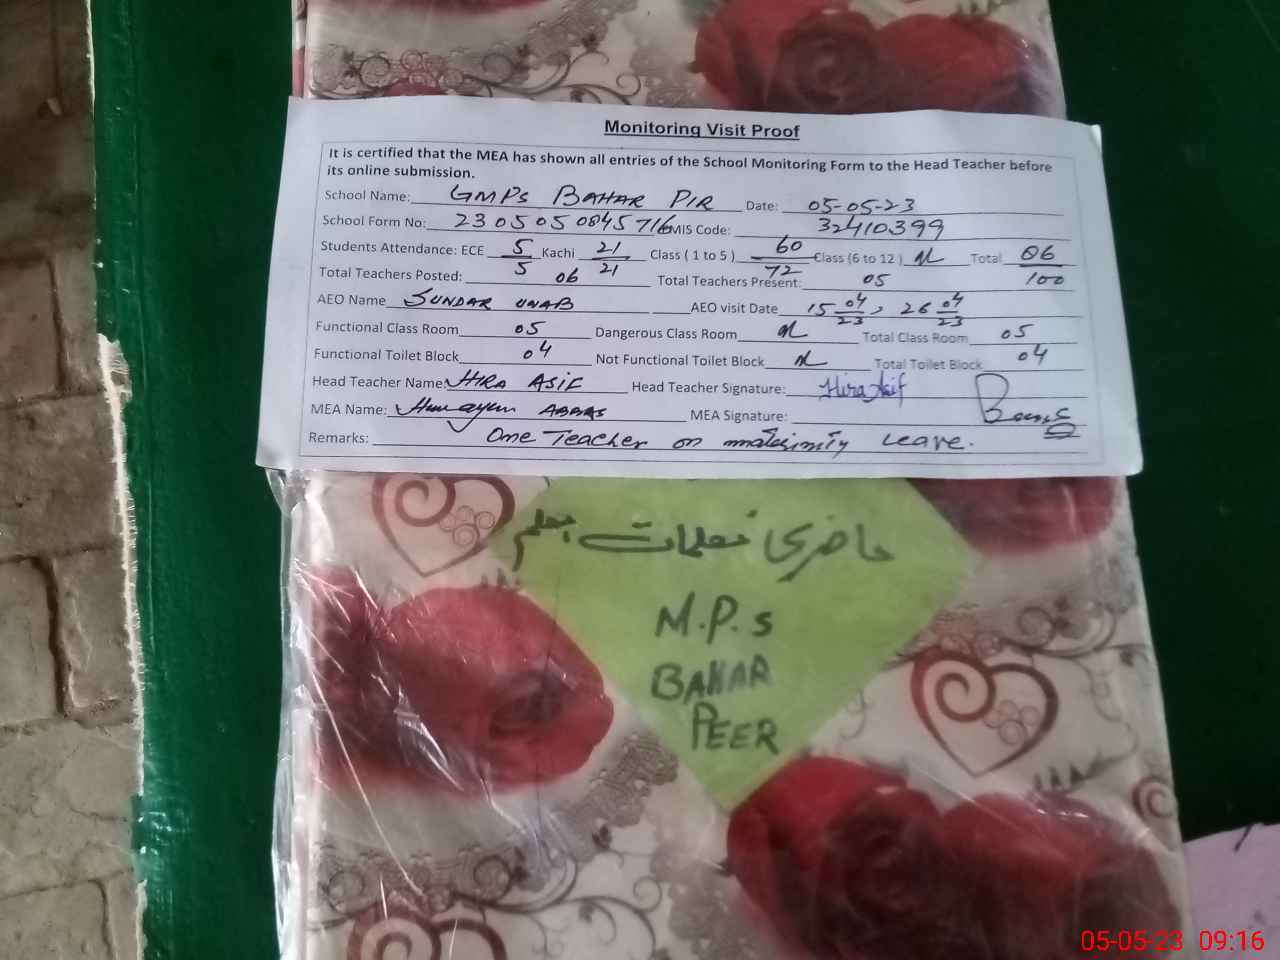 Monitoring Visit Proof
It is certified that the MEA has shown all entries of the School Monitoring Form to the Head Teacher before
its online submission.
School Name: GMPS BAHAR PIR Date: 05-05-23
School Form No: 2305050845716 EMIS Code: 32410399
Students Attendance: ECE 5/5 Kachi 21/21 Class ( 1 to 5 ) 60/72 Class (6 to 12 ) Total 86/100
Total Teachers Posted: 06 Total Teachers Present: 05
AEO Name SUNDAR AEO visit Date 15 04/23 , 26 04/23
Functional Class Room 05 Dangerous Class Room Total Class Room 05
Functional Toilet Block 04 Not Functional Toilet Block Total Toilet Block 04
Head Teacher Name: HIRA ASIF Head Teacher Signature: Hira Asif
MEA Name: Humayun ABBAS MEA Signature:
Remarks: One Teacher on leave.
حاضری
M.P.s
BAHAR
PEER
05-05-23 09:16